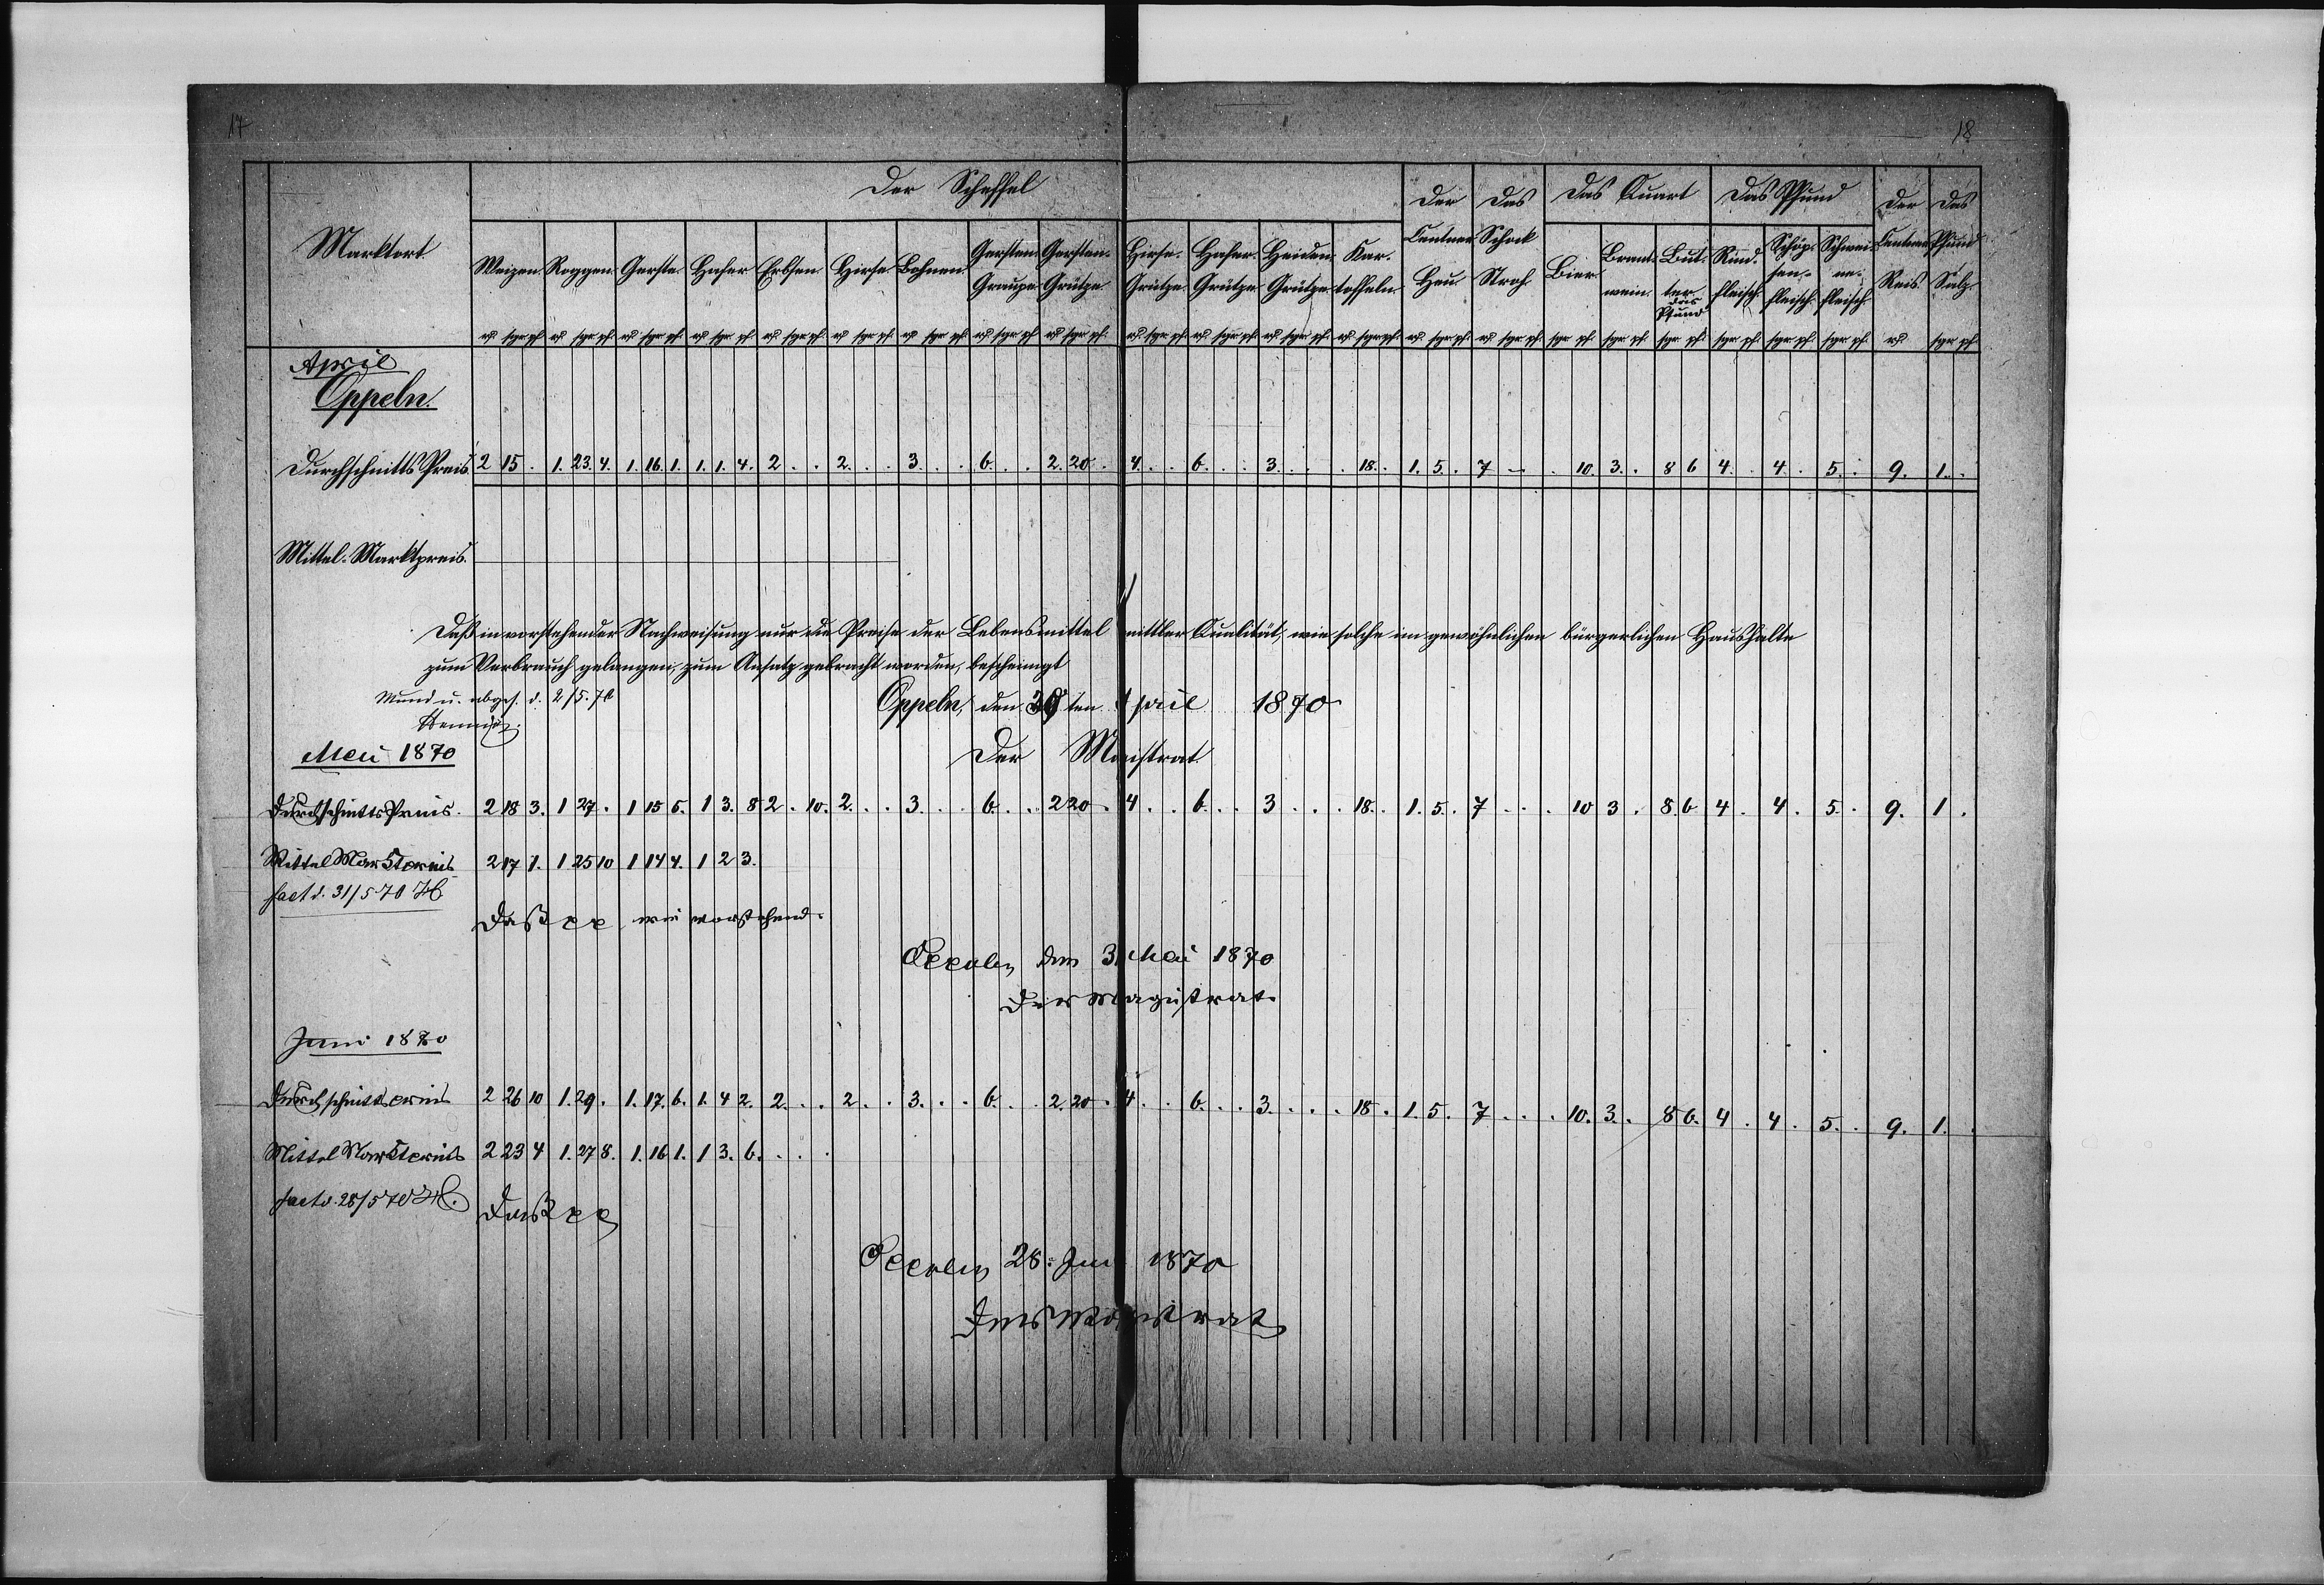 17
18
Der Scheffel
Der Centner Heu
Das Schock Stroh
Das Quart
Das Pfund
Der Centner Reis
Das Pfund Salz
Marktort
Weizen Roggen Gerste Hafer Erbsen Hirse Bohnen Gersten Graupe Gersten- Grütze Hirse- Grütze Hafer- Grütze Heiden Grütze Kar- toffeln Bier Brant- wein But- ter das Pfund Rind- fleisch Schöp- sen- fleisch Schwei- ne- fleisch
April
Oppeln.
Durchschnitts Preis. 2 15 . 1. 23. 4. 1. 16. 1. 1. 1. 4. 2 . . 2. . . 3. . . 6. . . 2. 20. . 4. . . 6. . . 3. . . . 18. . 1. 5. . 7 – . . 10. 3. . 8 6 4. . 4. . 5. . 9. 1. .
Mittel-Marktpreis.
Daß in vorstehender Nachweisung nur die Preise der Lebensmittel mittler Qualität, wie solche im gewöhnlichen bürgerlichen Haushalte
zum Verbrauch gelangen, zum Ansatz gebracht worden, bescheinigt
Mund u. abges. d. 2/5. 70
Oppeln, den 30ten April 1870
Der Magistrat
Mai 1870
Durchschnitts Preis. 2 18 3. 1 27. . 1 15 5. 1 3. 8 2 . 10. 2. . . 3. . . 6. . . 2 20 . 4 . . 6. . . 3 . . . 18. . 1. 5. . 7 . . . 10 3 . 8. 6. 4 . 4 . 5. . 9. 1 .
Mittel Marktpreis 2 17 1. 1 25 10 1 14 4. 1 2 3.
fact d. 31/5 70
Daß pp wie vorstehend.
Oppeln den 31 Mai 1870
Der Magistrat.
Juni 1870
Durchschnittspreis 2 26 10 1. 29. . 1. 17. 6. 1. 4 2. 2. . . 2. . . 3. . . 6. . . 2. 20 . 4 . . 6. . . 3. . . . 18 . 1. 5. . 7 . . . 10. 3. . 8 6. 4 . 4 . 5. . 9. 1. .
Mittel Marktpreis 2 23 4 1. 27 8. 1. 16 1. 1 3. 6. . . .
fact d. 28/5 70
Daß pp
Oppeln 28. Juni 1870
Der Magistrat